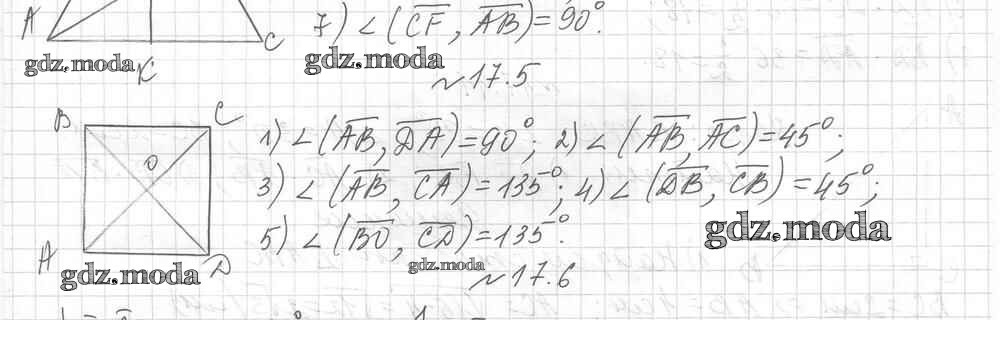 A
C
7) ∠(CF, AB)=90°.
gdz.moda
gdz.moda
K
~17.5
B
C
O
A
D
1) ∠(AB, DA)=90°; 2) ∠(AB, AC)=45°;
3) ∠(AB, CA)=135°; 4) ∠(DB, CB)=45°;
5) ∠(BO, CD)=135°.
gdz.moda
gdz.moda
gdz.moda
~17.6